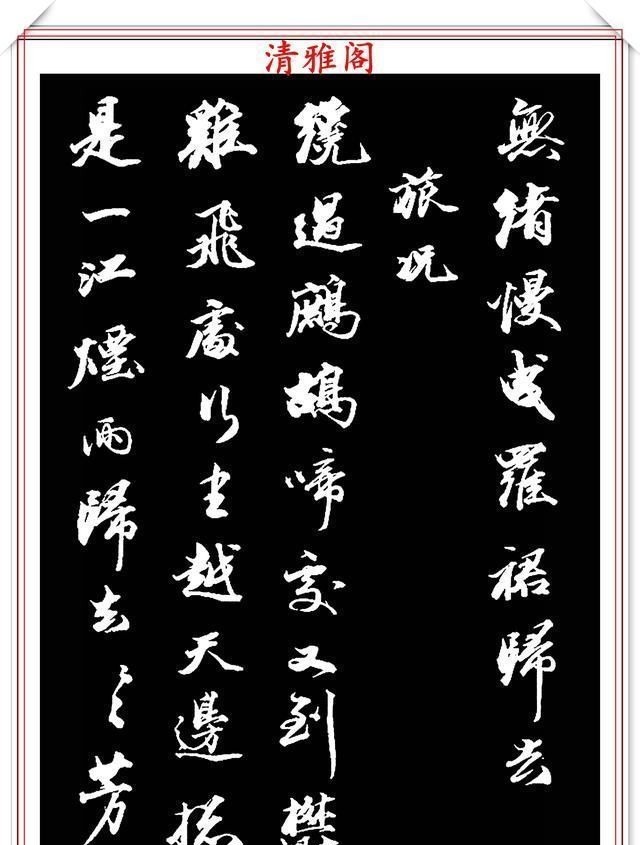 清雅阁
無緒慢曳羅裙歸去
旅况
纔過鷓鴣啼處又到
難飛處行盡越天邊猶
是一江煙雨歸去〻芳